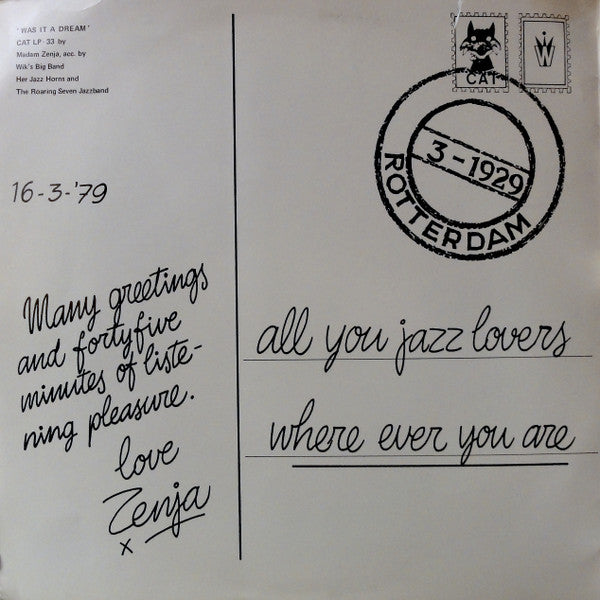 'WAS IT A DREAM'
CAT LP 33 by
Madam Zenja, acc. by
Wik's Big Band
Her Jazz Horns and
The Roaring Seven Jazzband
16-3-'79
Many greetings
and fortyfive
minutes of liste-
ning pleasure.
love
Zenja
x
CAT
W
3-1929
ROTTERDAM
all you jazz lovers
where ever you are